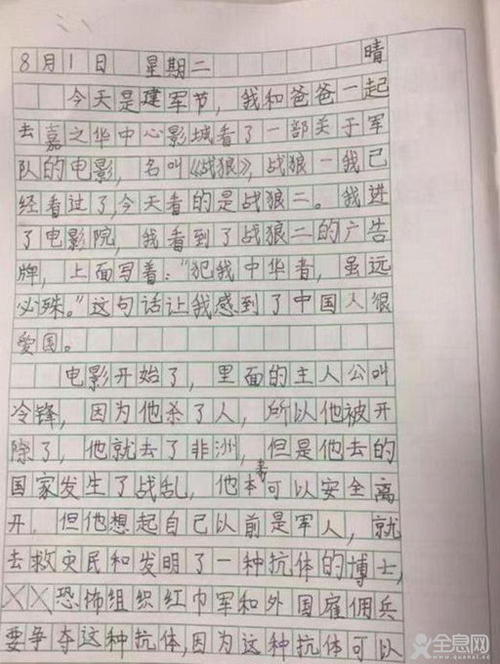 8月1日 星期二 晴
今天是建军节，我和爸爸一起
去嘉之华中心影城看了一部关于军
队的电影，名叫《战狼》，战狼一我已
经看过了，今天看的是战狼二。我进
了电影院，我看到了战狼二的广告
牌，上面写着：“犯我中华者，虽远
必殊。”这句话让我感到了中国人很
爱国。
电影开始了，里面的主人公叫
冷锋，因为他杀了人，所以他被开
除了，他就去了非洲，但是他去的
国家发生了战乱，他本来可以安全离
开，但他想起自己以前是军人，就
去救灾民和发明了一种抗体的博士，
恐怖组织红巾军和外国雇佣兵
要争夺这种抗体，因为这种抗体可以
全息网
www.quanxi.cc